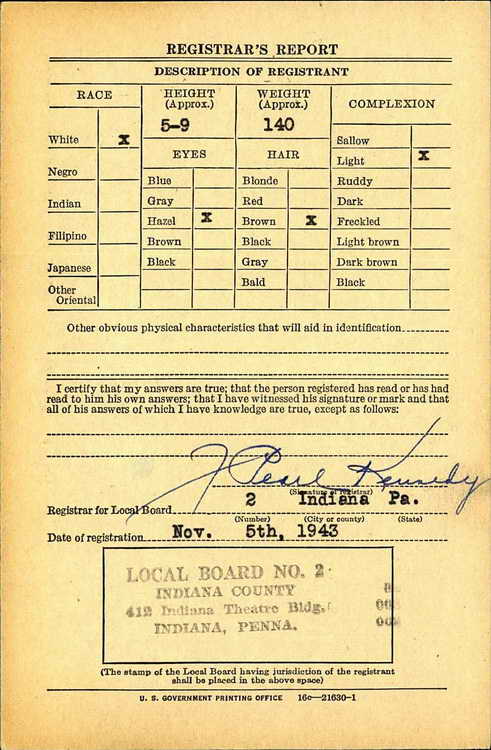 REGISTRAR'S REPORT
DESCRIPTION OF REGISTRANT
RACE
HEIGHT (Approx.)
WEIGHT (Approx.)
COMPLEXION
5-9
140
White X
EYES
HAIR
Sallow
Light X
Negro
Blue
Blonde
Ruddy
Indian
Gray
Red
Dark
Filipino
Hazel X
Brown X
Freckled
Brown
Black
Light brown
Japanese
Black
Gray
Dark brown
Other Oriental
Bald
Black
Other obvious physical characteristics that will aid in identification
I certify that my answers are true; that the person registered has read or has had
read to him his own answers; that I have witnessed his signature or mark and that
all of his answers of which I have knowledge are true, except as follows:
J Pearl Kennedy
(Signature of registrar)
Registrar for Local Board 2 Indiana Pa.
(Number) (City or county) (State)
Date of registration Nov. 5th, 1943
LOCAL BOARD NO. 2
INDIANA COUNTY
412 Indiana Theatre Bldg.
INDIANA, PENNA.
(The stamp of the Local Board having jurisdiction of the registrant
shall be placed in the above space)
U. S. GOVERNMENT PRINTING OFFICE 16c—21630-1